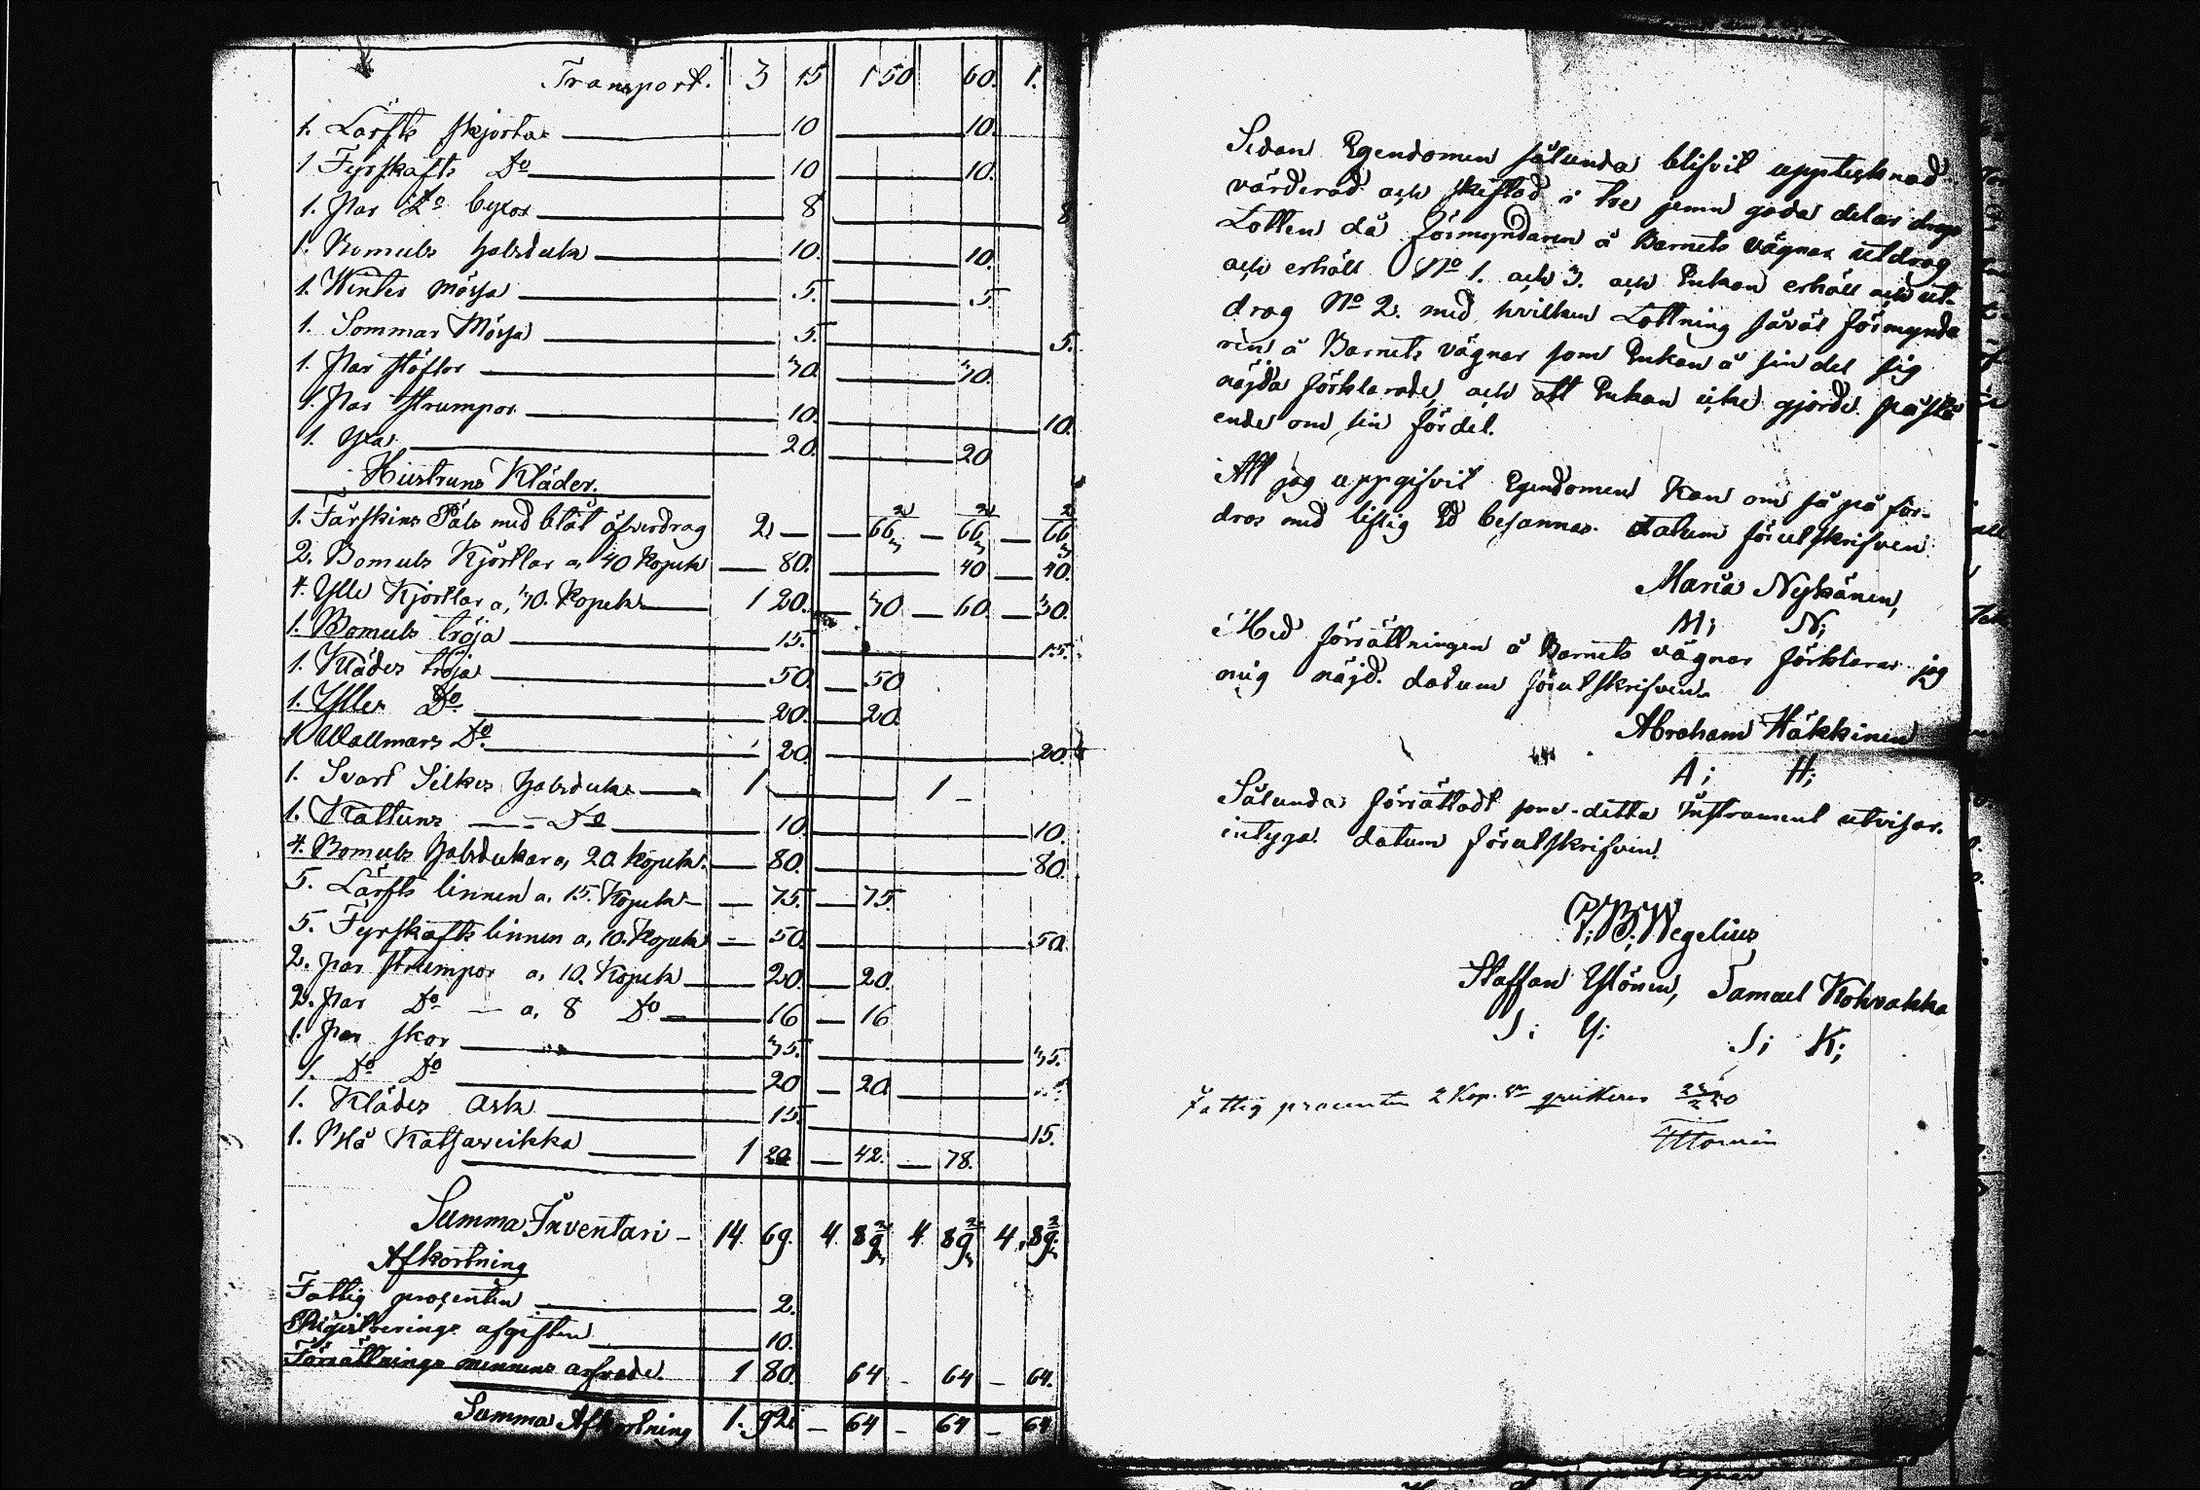 Transport. 3 15 1 50 60. 1.
1. Lärfts skjorta 10 10.
1 Fyrskafts Do 10 10.
1. Par Do byxor 8 8
1. Bomuls halsduk 10. 10.
1. Winter Mössa 5. 5.
1. Sommar Mössa 5. 5.
1. Par stöflor 70. 70.
1. Par strumpor 10. 10.
1. 20. 20
Hustruns Kläder.
1. Fårskins Päls med blåt öfverdrag 2 — — 66 2/3 — 66 2/3 — 66 2/3
2. Bomuls Kjortlar a, 40 Kopek — 80. 40 — 40.
4. Ylle Kjortlar a, 30. Kopek 1 20. — 30 — 60. — 30.
1. Bomuls tröja 15. 15.
1. Klädes tröja 50. — 50
1. Ylles Do 20. — 20.
1 Wallmars Do. 20. 20.
1. Svart Silkes halsduk 1 1 —
1. Kattuns — Do 10. 10.
4. Bomuls halsdukar a, 20. Kopek. — 80. 80.
5. Lärfts linnen a, 15. Kopek — — 75. — 75.
5. Fyrskafts linnen a, 10. Kopek — 50. 50.
2. par strumpor a, 10. Kopek 20. — 20.
2. par Do — a, 8 Do 16 — 16
1. par skor 35. 35.
1. Do Do 20 — 20.
1. Klädes Ask 15. 15.
1. Blå Katsaveikka 1 20 — 42. — 78.
Summa Inventari — 14. 69. 4. 89 2/3 4 89 2/3 4. 89 2/3
Afkortning
Fattig procenten 2.
Registrerings afgiften 10.
Förrättnings mennens arfvode. 1 80. 64 — 64 — 64.
Summa Afkortning 1. 92. — 64 — 64 — 64
Sedan Egendomen sålunda blifvit uppteknad
värderad och skiftad i tre jemn goda delar drogs
Lotten då förmyndaren å Barnets vägnar utdrog
och erhöll No 1. och 3. och Enkan erhöll och ut-
drog No 2. med hvilken Lottning såväl förmynda
ren å Barnets vägnar som Enkan å sin del sig
nöjda förklarade, och att Enkan icke gjorde påstå
ende om sin fördel.
Att jag uppgifvit Egendomen kan om så på for-
dras med liflig Ed besannas. datum förutskrifven.
Maria Nykänen,
M; N;
Med förrättningen å Barnets vägnar förklarar jag
mig nöjd. datum förutskrifven.
Abraham Häkkinen
A; H;
Sålunda förrättadt som detta Instrument utvisar.
intyga datum förutskrifven.
P; B; Wegelius
Staffan Ylönen, Samuel Kohvakka
S; Y; S; K;
Fattig procenten 2 Kop. Sr quitteras